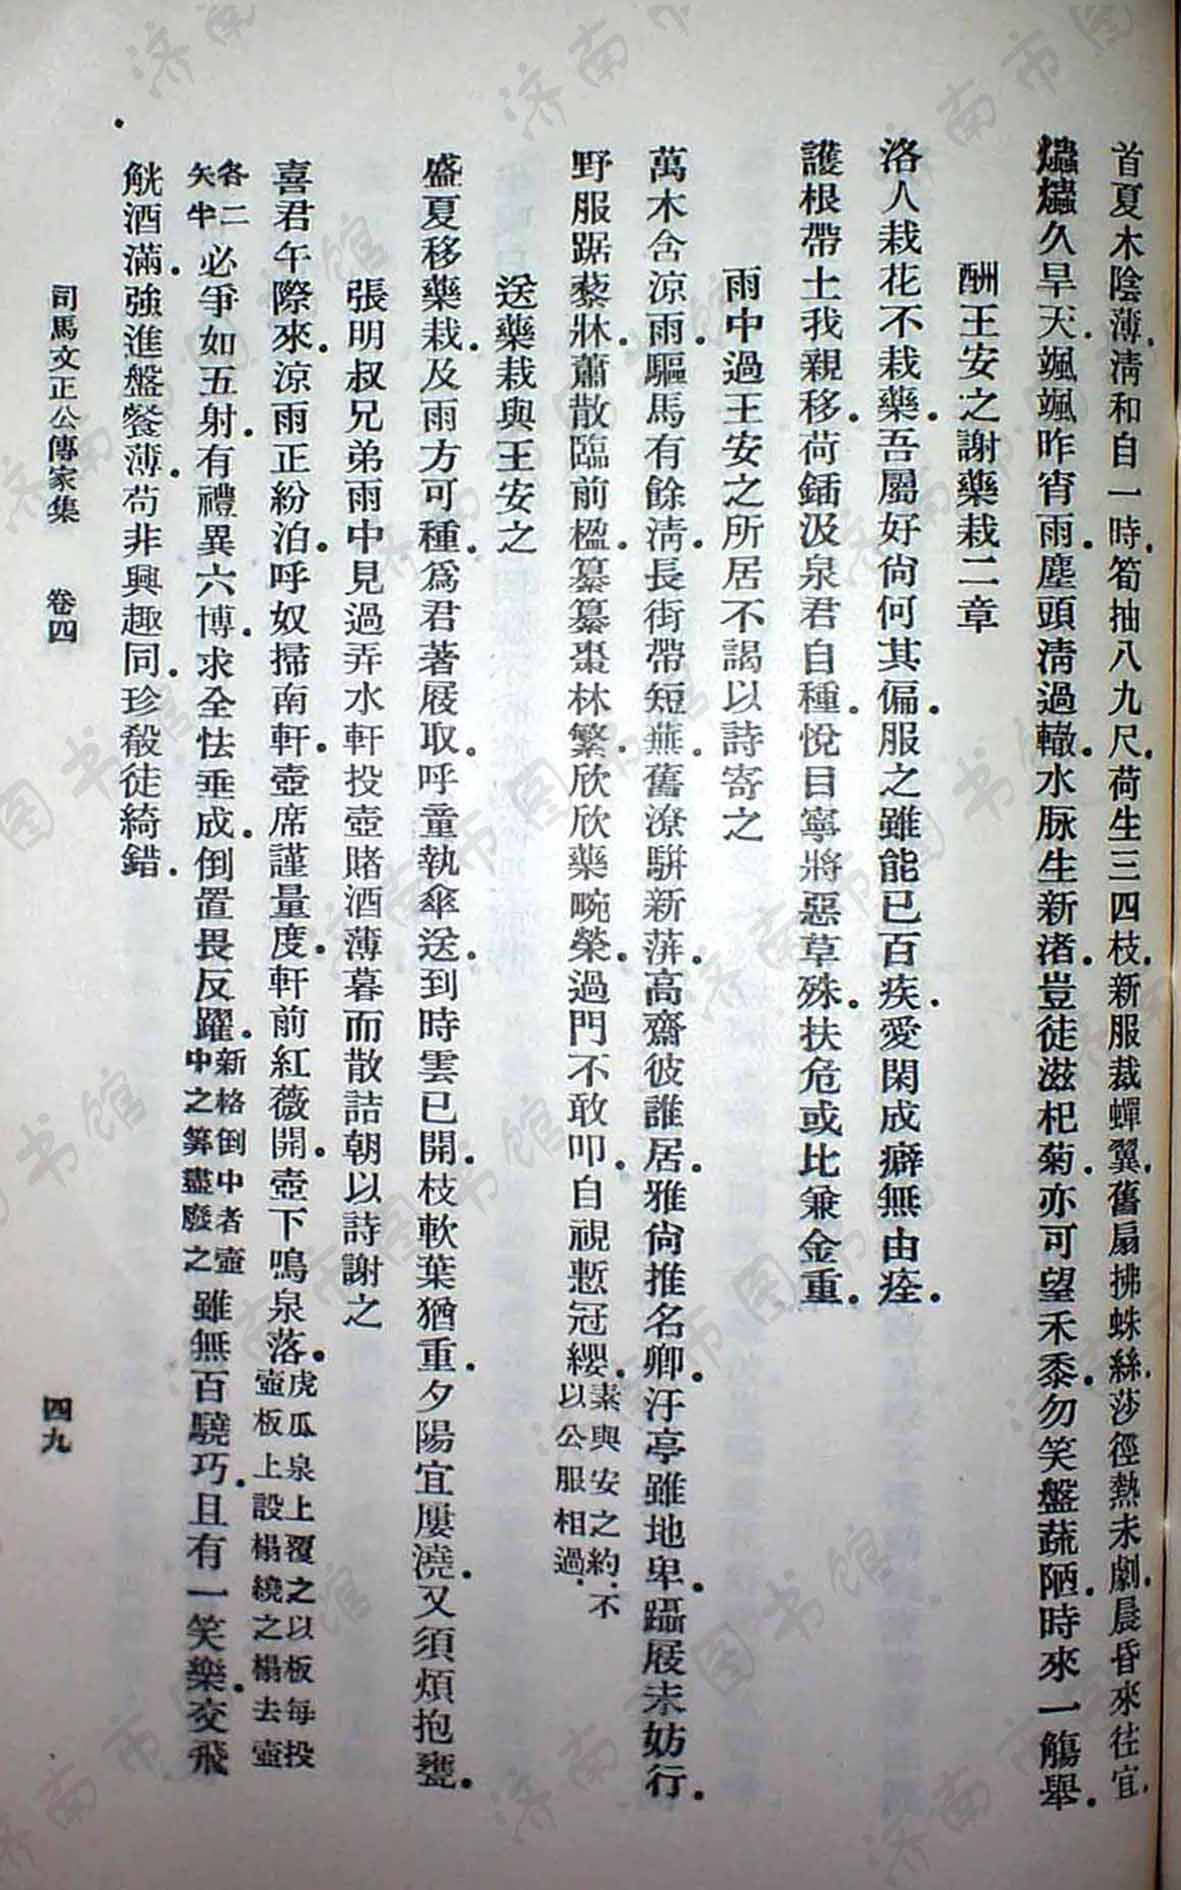 首夏木陰薄。清和自一時。筍抽八九尺。荷生三四枝。新服裁蟬翼。舊扇拂蛛絲。莎徑熱未劇。晨昏來往宜。
爞爞久旱天。颯颯昨宵雨。塵頭淸過轍。水脉生新渚。豈徒滋杞菊。亦可望禾黍。勿笑盤蔬陋。時來一觴舉。
酬王安之謝藥栽二章
洛人栽花不栽藥。吾屬好尙何其偏。服之雖能已百疾。愛閑成癖無由痊。
護根帶土我親移。荷鍤汲泉君自種。悅目寧將惡草殊。扶危或比兼金重。
雨中過王安之所居不謁以詩寄之
萬木含涼雨。驅馬有餘淸。長街帶短蕪。舊潦駢新萍。高齋彼誰居。雅尙推名卿。汙亭雖地卑。躡屐未妨行。
野服踞藜牀。蕭散臨前楹。纂纂棗林繁。欣欣藥畹榮。過門不敢叩。自視慙冠纓。素與安之約。不以公服相過。
送藥栽與王安之
盛夏移藥栽。及雨方可種。爲君著屐取。呼童執傘送。到時雲已開。枝軟葉猶重。夕陽宜屢澆。又須煩抱甕。
張明叔兄弟雨中見過弄水軒投壺賭酒薄暮而散詰朝以詩謝之
喜君午際來。涼雨正紛泊。呼奴掃南軒。壺席謹量度。軒前紅薇開。壺下鳴泉落。虎瓜泉上覆之以板每投壺板上設榻繞之榻去壺
各二矢半必爭如五射。有禮異六博。求全怯垂成。倒置畏反躍。新格倒中者壺中之筭盡廢之雖無百驍巧。且有一笑樂。交飛
觥酒滿。強進盤餐薄。苟非興趣同。珍殽徒綺錯。
司馬文正公傳家集 卷四 四九
济南市图书馆